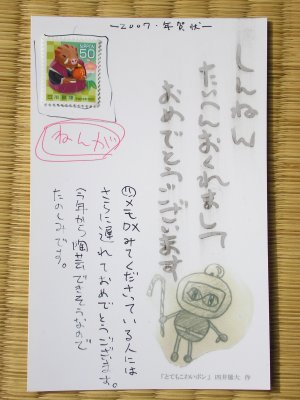 ー2007・年賀状ー
NIPPON
50
ねんが
しんねん
たいへんおくれまして
おめでとうございます
⑪メモDXみてくださっている人には
さらに遅れておめでとうございます。
今年から陶芸できそうなので
たのしみです。
『とてもこわいボン』 四井雄大 作